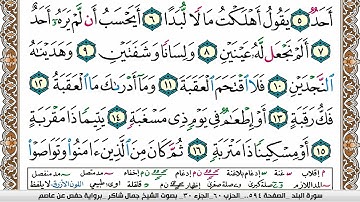 أَحَدٌ ٥ يَقُولُ أَهْلَكْتُ مَالًا لُّبَدًا ٦ أَيَحْسَبُ أَن لَّمْ يَرَهُۥٓ أَحَدٌ
٧ أَلَمْ نَجْعَل لَّهُۥ عَيْنَيْنِ ٨ وَلِسَانًا وَشَفَتَيْنِ ٩ وَهَدَيْنَٰهُ
ٱلنَّجْدَيْنِ ١٠ فَلَا ٱقْتَحَمَ ٱلْعَقَبَةَ ١١ وَمَآ أَدْرَىٰكَ مَا ٱلْعَقَبَةُ ١٢
فَكُّ رَقَبَةٍ ١٣ أَوْ إِطْعَٰمٌ فِى يَوْمٍ ذِى مَسْغَبَةٍ ١٤ يَتِيمًا ذَا مَقْرَبَةٍ
١٥ أَوْ مِسْكِينًا ذَا مَتْرَبَةٍ ١٦ ثُمَّ كَانَ مِنَ ٱلَّذِينَ ءَامَنُوا۟ وَتَوَاصَوْا۟
سورة البلد _ الصفحة ٥٩٤ _ الحزب ٦٠ _ الجزء ٣٠ _ بصوت الشيخ جمال شاكر _ برواية حفص عن عاصم